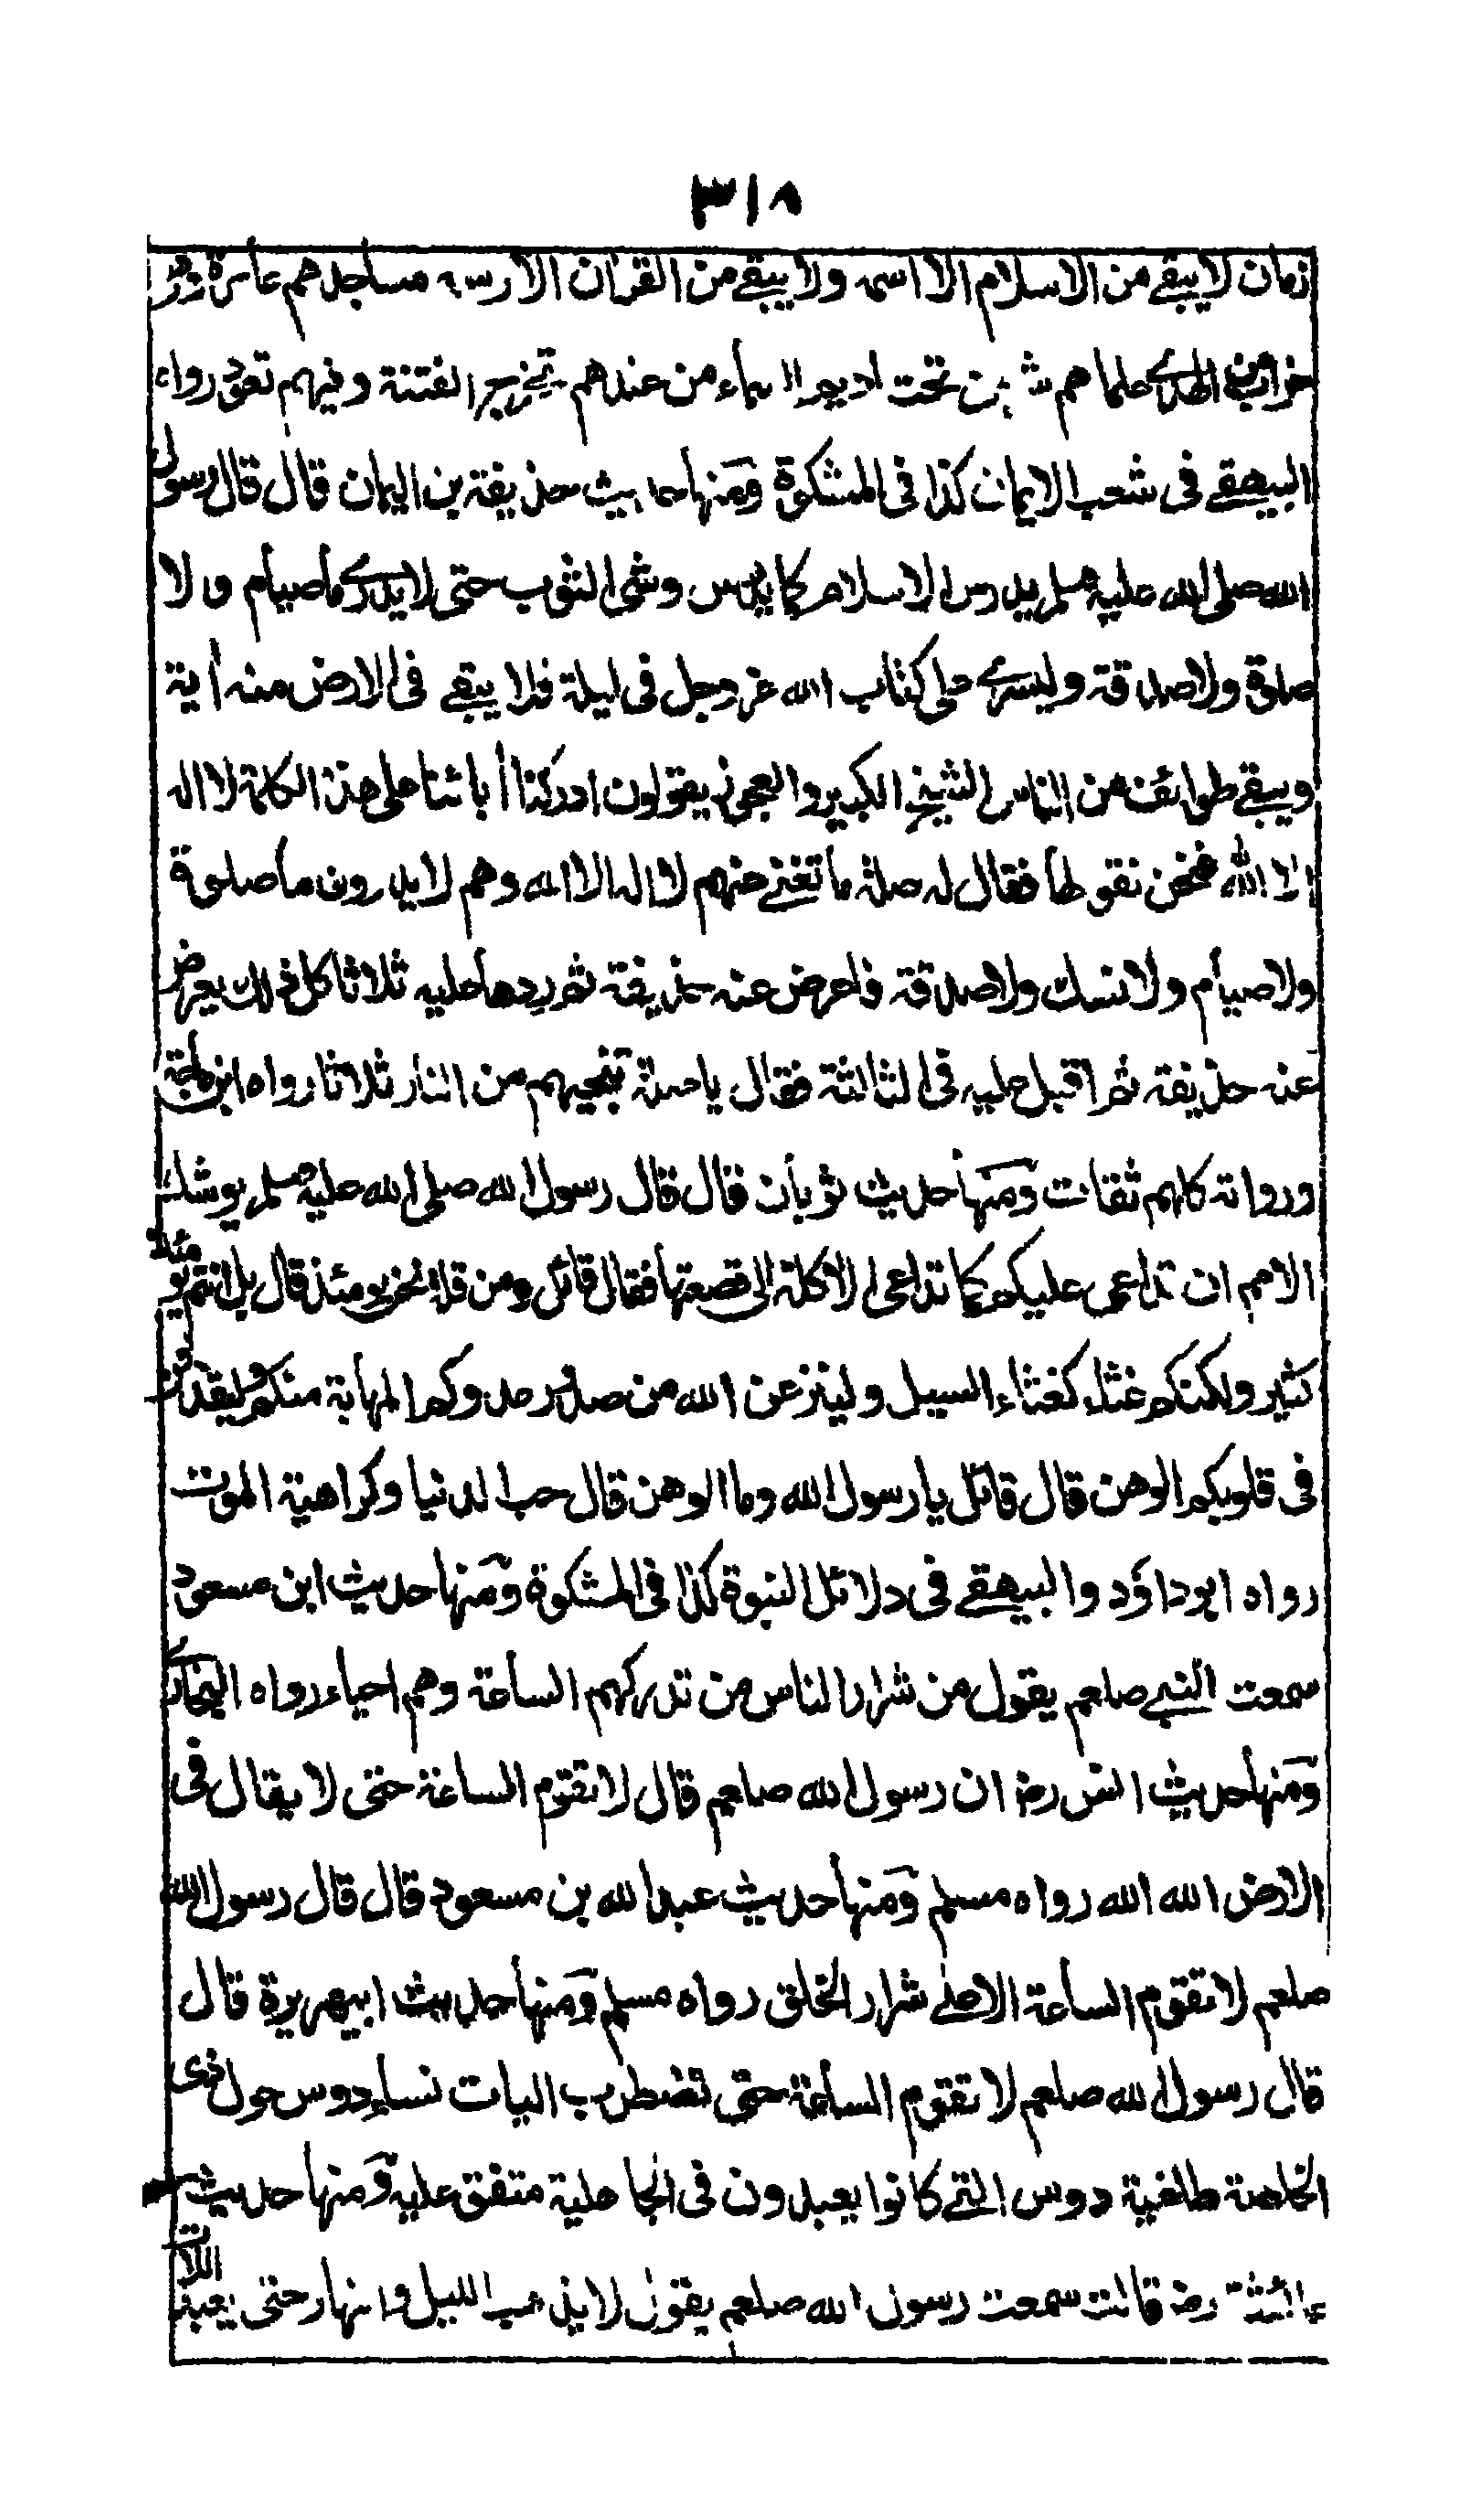 ٣١٨
زمان لا يبقے من الاسلام الا اسمه ولا يبقے من القرآن الا رسمه مساجدهم عامرة وهی
خراب من الهدے علماءهم شر من تحت اديم السماء من عندهم تخرج الفتنة وفيهم تعود رواه
البيهقے فی شعب الايمان كذا فی المشكوة ومنها حديث حذيفة بن اليمان قال قال رسول
الله صلی الله عليه وسلم يدرس الاسلام كما يدرس وشی الثوب حتی لا يدرے ما صيام ولا
صلوة ولا صدقة وليسرے علی كتاب الله عز وجل فی ليلة فلا يبقے فی الارض منه آية
ويبقے طوائف من الناس الشيخ الكبير والعجوز يقولون ادركنا أبائنا علی هذه الكلمة لا اله
الا الله فنحن نقولها فقال له صلة ما تغنے عنهم لا اله الا الله وهم لا يدرون ما صلوة
ولا صيام ولا نسك ولا صدقة فاعرض عنه حذيفة ثم ردها عليه ثلاثا كل ذلك يعرض
عنه حذيفة ثم اقبل عليه فی الثالثة فقال يا صلة تنجيهم من النار ثلاثا رواه ابن ماجة
ورواته كلهم ثقات ومنها حديث ثوبان قال قال رسول الله صلی الله عليه وسلم يوشك
الامم ان تداعی عليكم كما تداعی الاكلة الی قصعتها فقال قائل ومن قلة نحن يومئذ قال بل انتم يومئذ
كثير ولكنكم غثاء كغثاء السيل ولينزعن الله من صدور عدوكم المهابة منكم وليقذفن
فی قلوبكم الوهن قال قائل يا رسول الله وما الوهن قال حب الدنيا وكراهية الموت
رواه ابو داؤد والبيهقے فی دلائل النبوة كذا فی المشكوة ومنها حديث ابن مسعود
سمعت النبے صلعم يقول من شرار الناس من تدركهم الساعة وهم احياء رواه البخاری
ومنها حديث انس رض ان رسول الله صلعم قال لا تقوم الساعة حتی لا يقال فی
الارض الله الله رواه مسلم ومنها حديث عبد الله بن مسعود قال قال رسول الله
صلعم لا تقوم الساعة الا علے شرار الخلق رواه مسلم ومنها حديث ابيهريرة قال
قال رسول الله صلعم لا تقوم الساعة حتی تضطرب اليات نساء دوس حول ذی
الخلصة طاغية دوس التے كانوا يعبدون فی الجاهلية متفق عليه ومنها حديث
عائشة رض قالت سمعت رسول الله صلعم يقول لا يذهب الليل والنهار حتی يعبد اللات